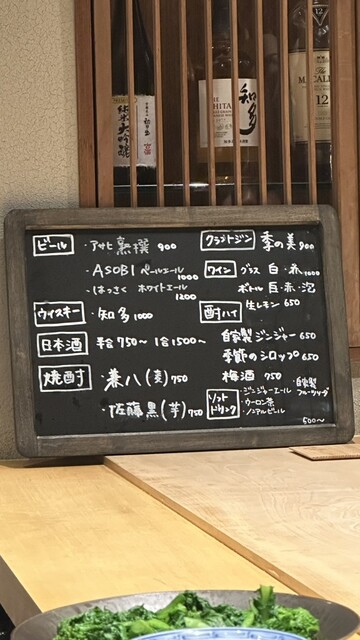 純米
大吟醸
知多
THE
MACALLAN
12
ビール
・アサヒ 熟撰 900
・ASOBI ペールエール 1000
・はっさく ホワイトエール 1200
ウィスキー
・知多 1000
日本酒
半合750〜 1合1500〜
焼酎
・兼八(麦)750
・佐藤黒(芋)750
クラフトジン
季の美 900
ワイン
グラス 白・赤 1000
ボトル 白・赤・泡
酎ハイ
生レモン 650
自家製ジンジャー 650
季節のシロップ 650
梅酒 750
ソフトドリンク
・ジンジャーエール
・ウーロン茶
・ノンアルビール
・自家製
600〜